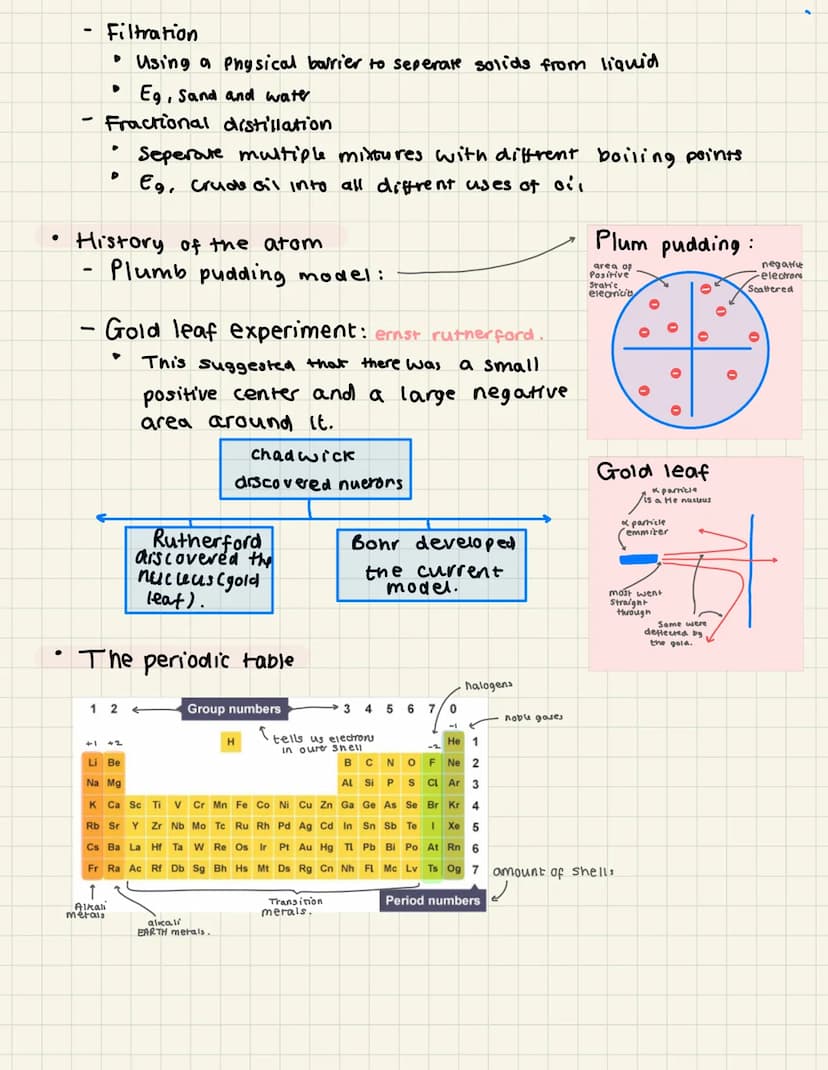 - Filtration
• Using a physical barrier to seperate solids from liquid
• Eg, sand and water
- Fractional distillation
• Seperate multiple mixtures with diffrent boiling points
• Eg, crude oil into all diffrent uses of oil
• History of the atom
- Plumb pudding model:
- Gold leaf experiment: ernst rutherford.
• This suggested that there was a small
positive center and a large negative
area around it.
Plum pudding:
area of
Positive
static
electricity
negative
electrons
Scattered
chadwick
discovered nuetrons
Rutherford
discovered the
nucleus (gold
leaf).
Bohr developed
the current
model.
Gold leaf
α particle
is a He nucleus
α particle
emmiter
most went
straight
through
Some were
deflected by
the gold.
• The periodic table
halogens
1 2 Group numbers 3 4 5 6 7 0
noble gases
+1 +2
tells us electrons
in outer shell
-2 -1
H He 1
Li Be B C N O F Ne 2
Na Mg Al Si P S Cl Ar 3
K Ca Sc Ti V Cr Mn Fe Co Ni Cu Zn Ga Ge As Se Br Kr 4
Rb Sr Y Zr Nb Mo Tc Ru Rh Pd Ag Cd In Sn Sb Te I Xe 5
Cs Ba La Hf Ta W Re Os Ir Pt Au Hg Tl Pb Bi Po At Rn 6
Fr Ra Ac Rf Db Sg Bh Hs Mt Ds Rg Cn Nh Fl Mc Lv Ts Og 7 amount of shells
Alkali
metals
alkali
EARTH metals.
Transition
metals.
Period numbers